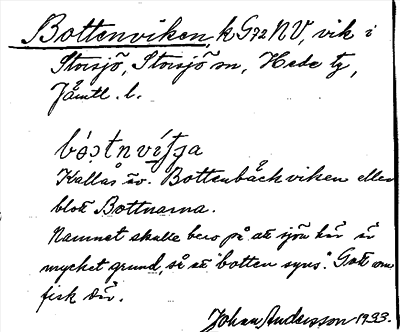 Bottenviken, k G72 NV, vik i
Storsjö, Storsjö sn, Hede tg,
Jämtl. l.
Kallas äv. Bottenbäckviken eller
blott Bottnarna.
Namnet skulle bero på att sjön här är
mycket grund, så att "botten syns". Gott om
fisk där.
Johan Andersson 1933.